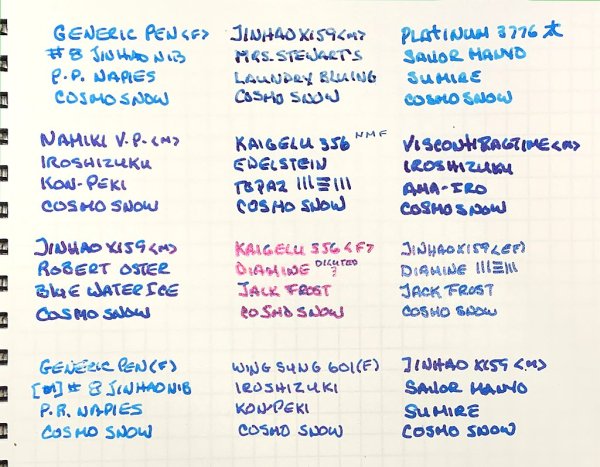 GENERIC PEN (F)
#8 JINHAO NIB
P.P. NAPLES
COSMO SNOW
JINHAO X159 <M>
MRS. STEWART'S
LAUNDRY BLUING
COSMO SNOW
PLATINUM 3776
SAILOR MANYO
SUMIRE
COSMO SNOW
NAMIKI V.P. <M>
IROSHIZUKU
KON-PEKI
COSMO SNOW
KAIGELU 356 NMF
EDELSTEIN
TOPAZ
COSMO SNOW
VISCONTI RAGTIME <M>
IROSHIZUKU
AMA-IRO
COSMO SNOW
JINHAO X159 <M>
ROBERT OSTER
BLUE WATER ICE
COSMO SNOW
KAIGELU 356 <F>
DIAMINE DILUTED ?
JACK FROST
COSMO SNOW
JINHAO X159 <EF>
DIAMINE
JACK FROST
COSMO SNOW
GENERIC PEN (F)
[#1] #8 JINHAO NIB
P.R. NAPLES
COSMO SNOW
WING SUNG 601 (F)
IROSHIZUKI
KON-PEKI
COSMO SNOW
JINHAO X159 <M>
SAILOR MANYO
SUMIRE
COSMO SNOW